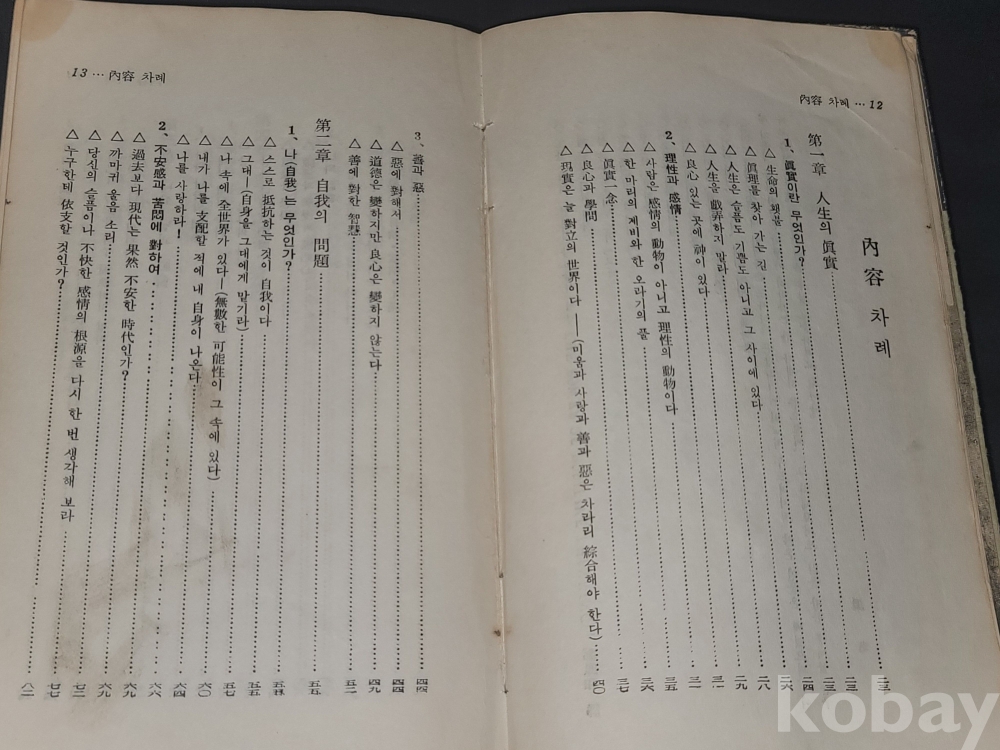 內容 차례 … 12
內容 차례
第一章 人生의 眞實 二三
1、眞實이란 무엇인가? 二三
△ 生命의 횃불 二三
△ 眞理를 찾아 가는 길 二四
△ 人生은 슬픔도 기쁨도 아니고 그 사이에 있다 二六
△ 人生을 戱弄하지 말라 二八
△ 良心 있는 곳에 神이 있다 二九
2、理性과 感情 三一
△ 사람은 感情의 動物이 아니고 理性의 動物이다 三一
△ 한 마리의 제비와 한 오라기의 풀 三五
△ 眞實一念 三六
△ 良心과 學問 三七
△ 現實은 늘 對立의 世界이다 ──(미움과 사랑과 善과 惡은 차라리 綜合해야 한다) 四〇
13 … 內容 차례
3、善과 惡 四四
△ 惡에 對해서 四四
△ 道德은 變하지만 良心은 變하지 않는다 四九
△ 善에 對한 智慧 五二
第二章 自我의 問題 五五
1、나(自我)는 무엇인가? 五五
△ 스스로 抵抗하는 것이 自我이다 五五
△ 그대─(自身을 그대에게 맡기라) 五七
△ 나 속에 全世界가 있다─(無數한 可能性이 그 속에 있다) 六〇
△ 내가 나를 支配할 적에 내 自身이 나온다 六四
△ 나를 사랑하라! 六六
2、不安感과 苦悶에 對하여 六九
△ 過去보다 現代는 果然 不安한 時代인가? 六九
△ 까마귀 울음 소리 七二
△ 당신의 슬픔이나 不快한 感情의 根源을 다시 한 번 생각해 보라 七七
△ 누구한테 依支할 것인가? 八二
kobay